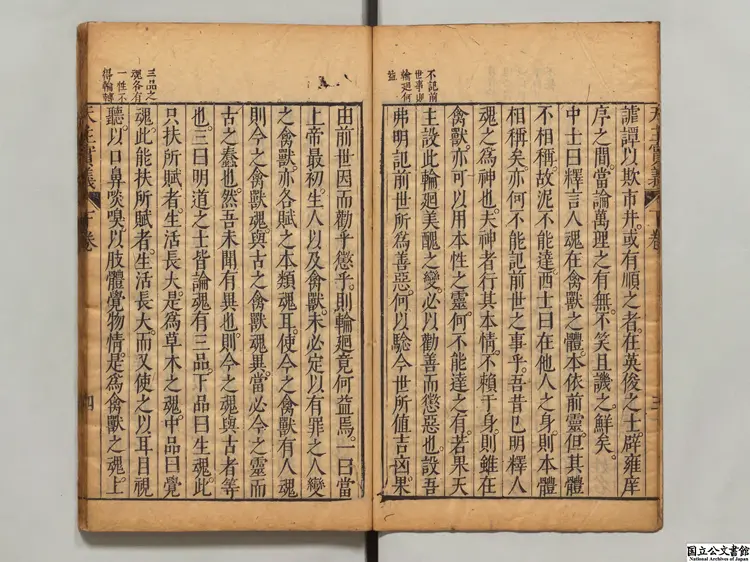 不記前
世事則
輪廻何
益
謔譚以欺市井。或有順之者。在英俊之士。辟雍庠
序之間。當論萬理之有無。不笑且譏之。鮮矣。
中士曰釋言人魂在禽獸之體。本依前靈。但其體
不相稱。故泥不能達。西士曰在他人之身。則本體
相稱矣。亦何不能記前世之事乎。吾昔已明釋人
魂之爲神也。夫神者行其本情。不賴于身。則雖在
禽獸。亦可以用本性之靈。何不能達之有。若果天
主設此輪廻美醜之變。必以勸善而懲惡也。設吾
弗明記前世所爲善惡。何以騐今世所值吉凶。果
三品之
魂各有
一性不
得輪轉
由前世因而勸乎懲乎。則輪廻竟何益焉。一曰當
上帝最初生人以及禽獸。未必定以有罪之人變
之禽獸。亦各賦之本類魂耳。使今之禽獸有人魂
則今之禽獸魂與古之禽獸魂異。當必今之靈而
古之蠢也。然吾未聞有異也。則今之魂與古者等
也。三曰明道之士皆論魂有三品。下品曰生魂。此
只扶所賦者生活長大。是爲草木之魂。中品曰覺
魂。此能扶所賦者。生活長大。而又使之以耳目視
聽。以口鼻啖嗅。以肢體覺物情。是爲禽獸之魂。上
天主實義 下卷 四
国立公文書館
National Archives of Japan